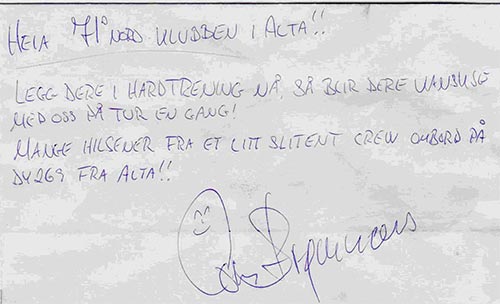 HEIA 71° NORD KLUBBEN I ALTA!!
LEGG DERE I HARDTRENING NÅ, SÅ BLIR DERE KANSKJE
MED OSS PÅ TUR EN GANG!
MANGE HILSENER FRA ET LITT SLITENT CREW OMBORD PÅ
DY269 FRA ALTA!!